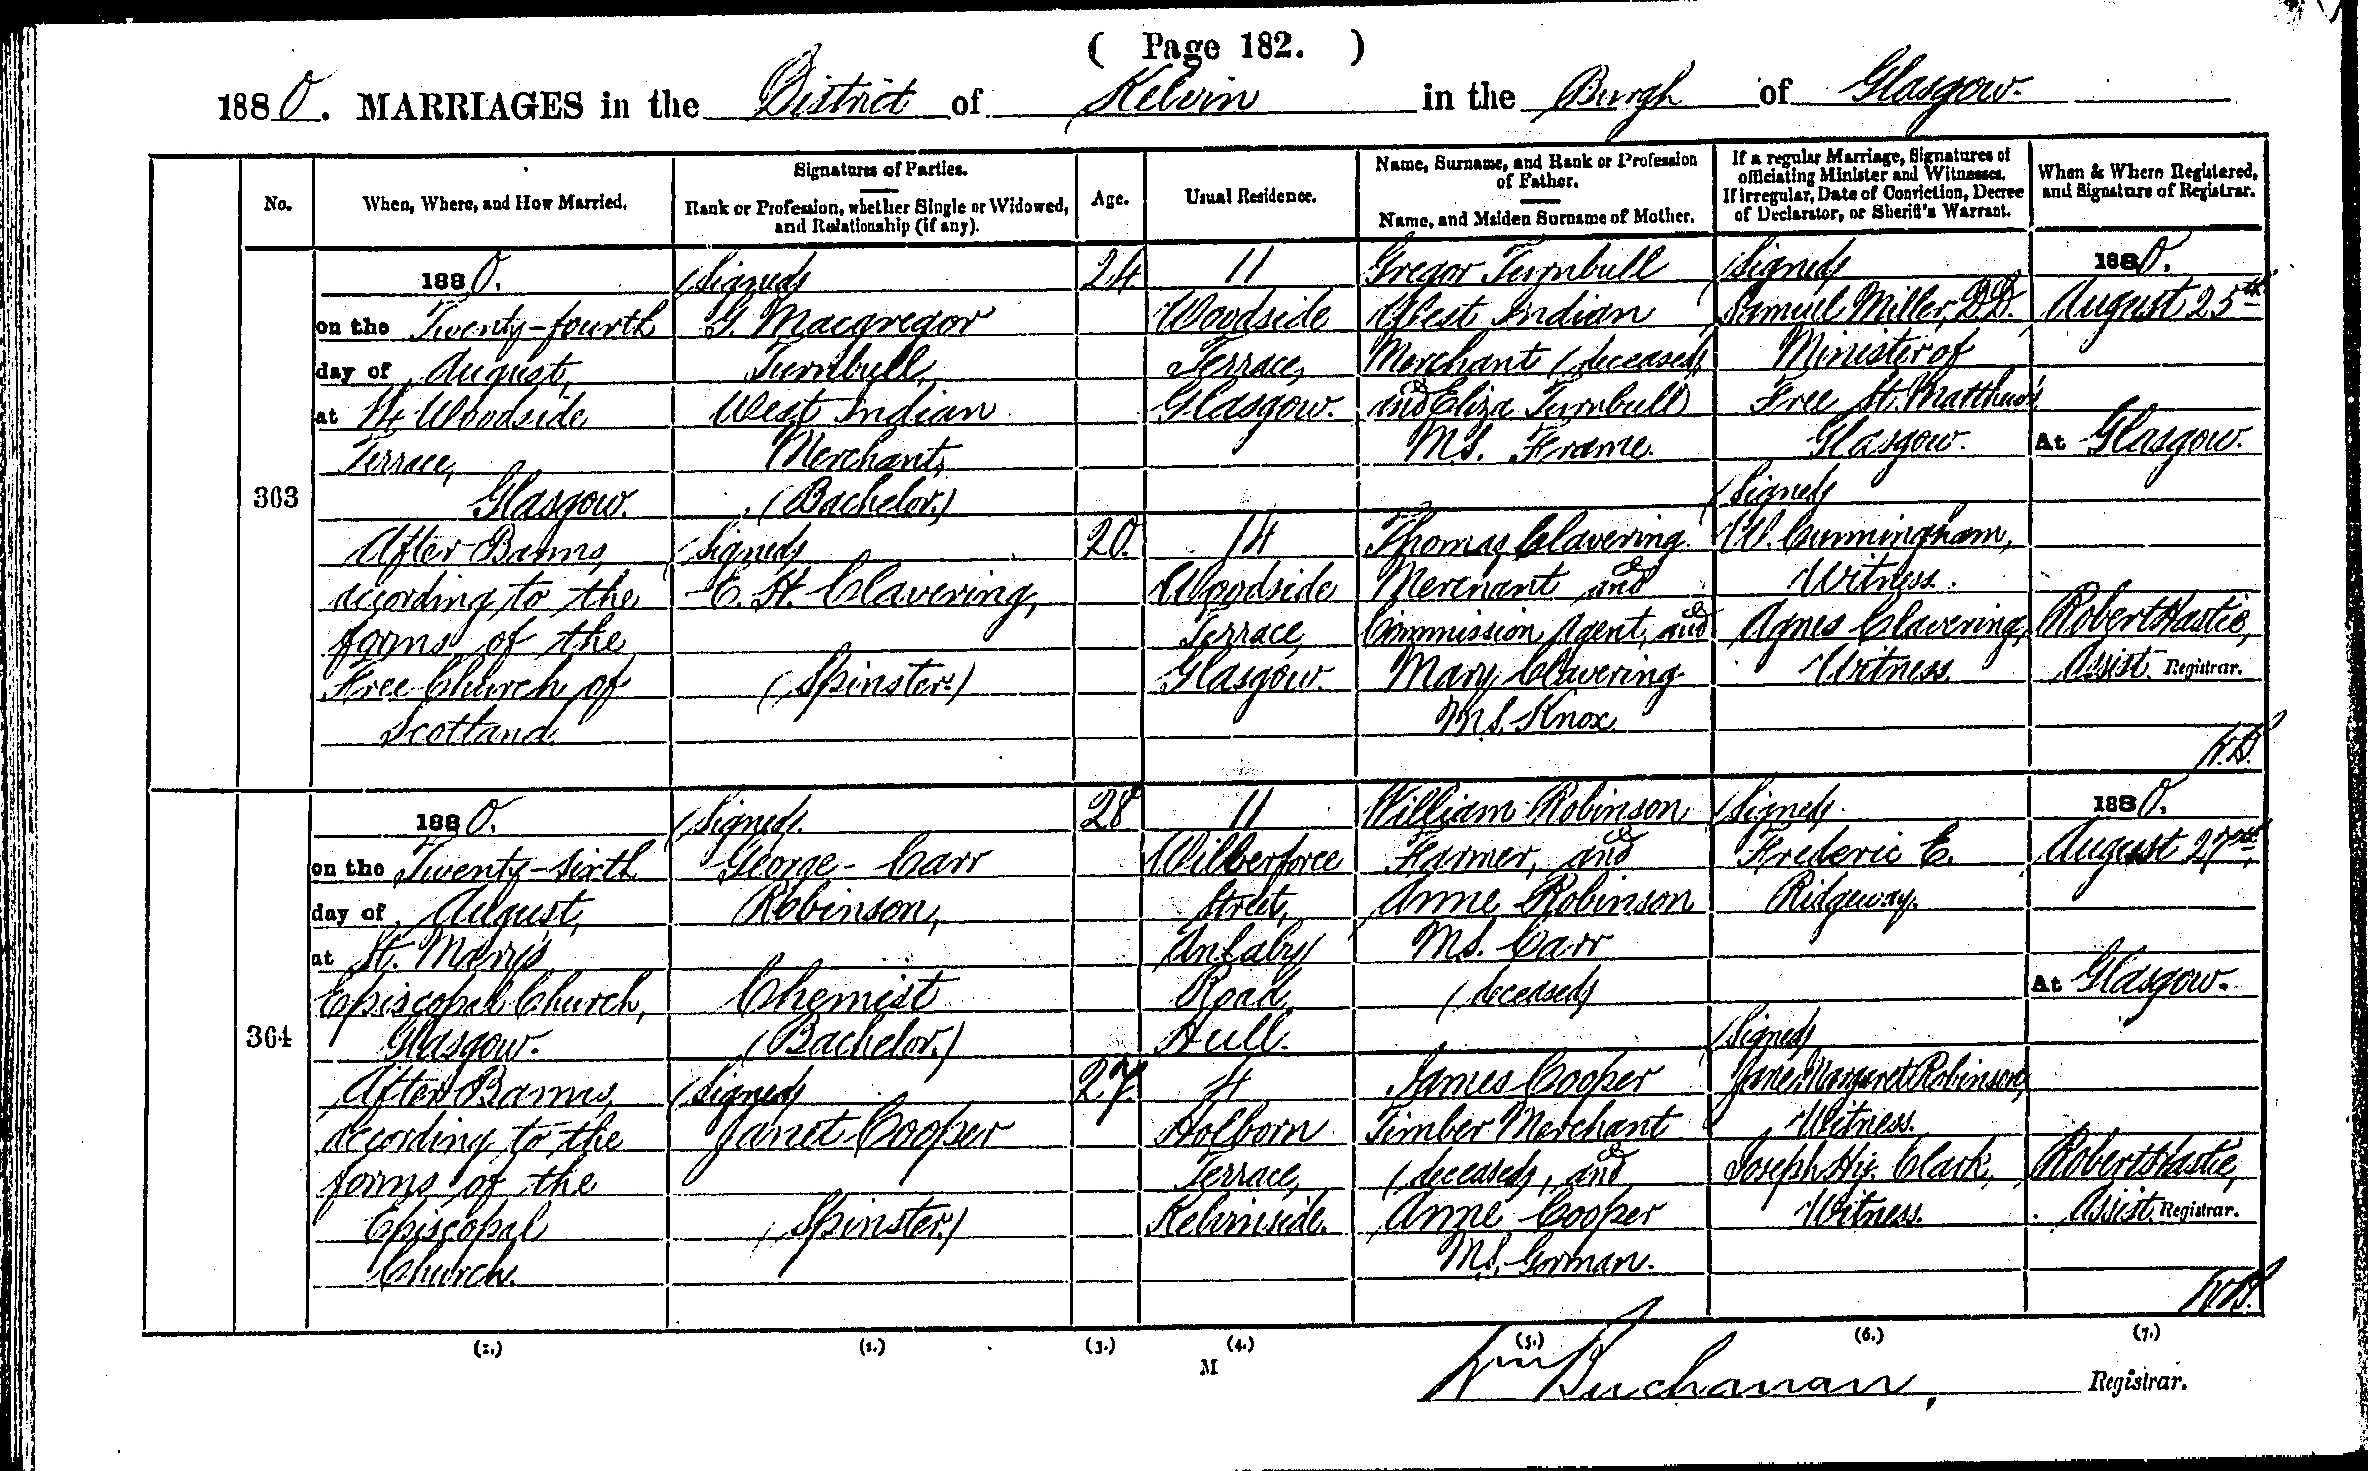 ( Page 182. )
1880. MARRIAGES in the District of Kelvin in the Burgh of Glasgow.
No.
When, Where, and How Married.
Signatures of Parties.
Rank or Profession, whether Single or Widowed,
and Relationship (if any).
Age.
Usual Residence.
Name, Surname, and Rank or Profession
of Father.
Name, and Maiden Surname of Mother.
If a regular Marriage, Signatures of
officiating Minister and Witnesses.
If irregular, Date of Conviction, Decree
of Declarator, or Sheriff's Warrant.
When & Where Registered,
and Signature of Registrar.
363
1880.
on the Twenty-fourth
day of August,
at 14 Woodside
Terrace,
Glasgow.
After Banns,
according to the
forms of the
Free Church of
Scotland.
(Signed)
G. Macgregor
Turnbull,
West Indian
Merchant,
(Bachelor.)
(Signed)
C. H. Clavering,
(Spinster.)
24
20.
11
Woodside
Terrace,
Glasgow.
14
Woodside
Terrace,
Glasgow.
Gregor Turnbull
West Indian
Merchant (deceased)
and Eliza Turnbull
M.S. Frame.
Thomas Clavering
Merchant and
Commission Agent, and
Mary Clavering
M.S. Knox.
(Signed)
Samuel Miller, D.D.
Minister of
Free St. Matthew's
Glasgow.
(Signed)
W. Cunningham,
Witness.
Agnes Clavering,
Witness.
1880.
August 25th
At Glasgow.
Robert Hastie,
Assist. Registrar.
364
1880.
on the Twenty-sixth
day of August,
at St. Mary's
Episcopal Church,
Glasgow.
After Banns,
according to the
forms of the
Episcopal
Church.
(Signed)
George Carr
Robinson,
Chemist
(Bachelor.)
(Signed)
Janet Cooper
(Spinster.)
28
27.
11
Wilberforce
Street,
Anlaby
Road,
Hull.
4
Holborn
Terrace,
Kelvinside.
William Robinson
Farmer, and
Anne Robinson
M.S. Carr
(deceased)
James Cooper
Timber Merchant
(deceased), and
Anne Cooper
M.S. Gorman.
(Signed)
Frederic E.
Ridgeway.
(Signed)
Jane Margaret Robinson,
Witness.
Joseph Hy. Clark,
Witness.
1880.
August 27th
At Glasgow.
Robert Hastie,
Assist. Registrar.
(1.) (3.) (4.) (5.) (6.) (7.)
M
Wm Buchanan, Registrar.